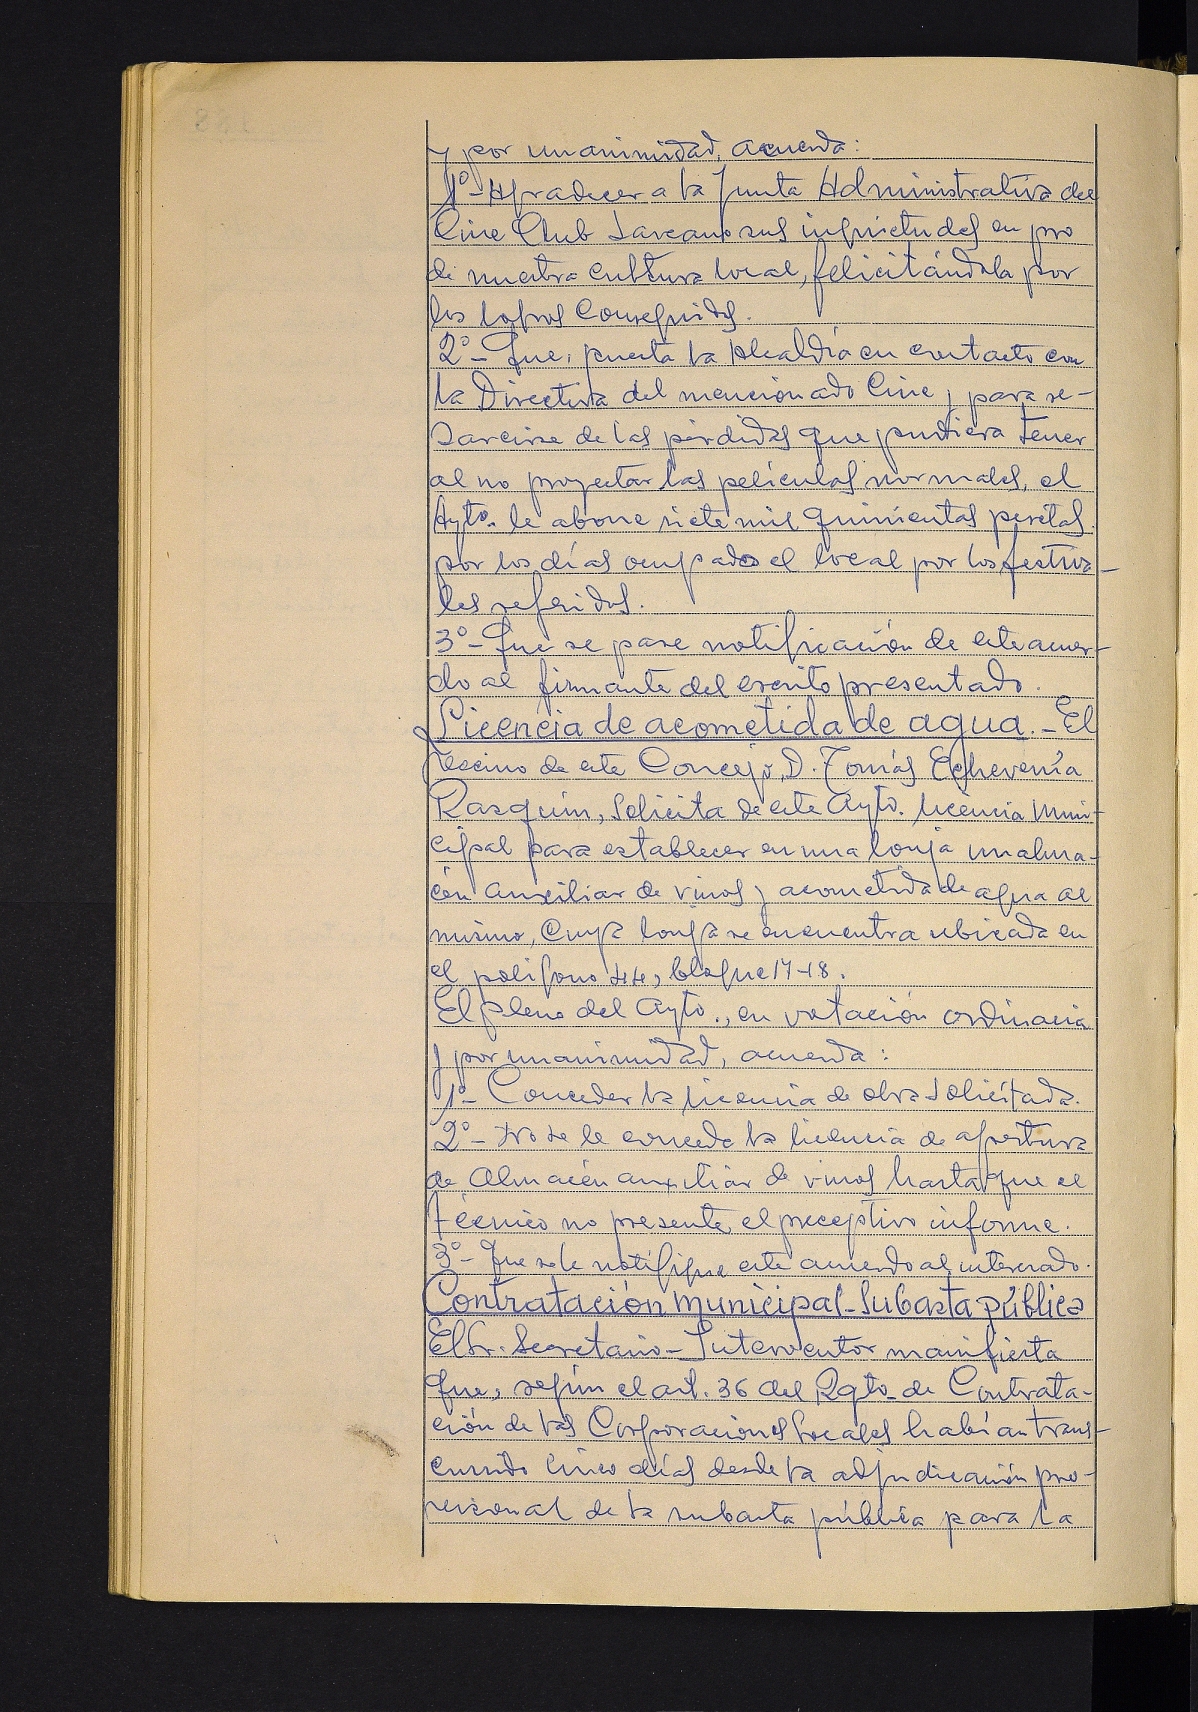 y por unanimidad, acuerda:
1º- Agradecer a la Junta Administrativa del
Cine Club Lazcano sus inquietudes en pro
de nuestra cultura local, felicitándola por
los logros conseguidos.
2º- Que, puesta la Alcaldía en contacto con
la Directiva del mencionado Cine y para re-
sarcirse de las pérdidas que pudiera tener
al no proyectar las películas normales, el
Ayto. le abone siete mil quinientas pesetas
por los días ocupados el local por los festiva-
les referidos.
3º- Que se pase notificación de este acuer-
do al firmante del escrito presentado.
Licencia de acometida de agua.- El
vecino de este Concejo, D. Tomás Echeverría
Rasquin, solicita de este Ayto. licencia muni-
cipal para establecer en una lonja un alma-
cén auxiliar de vinos y acometida de agua al
mismo, cuya lonja se encuentra ubicada en
el polígono 44, bloque 17-18.
El pleno del Ayto., en votación ordinaria
y por unanimidad, acuerda:
1º- Conceder la licencia de obra solicitada.
2º- No se le concede la licencia de apertura
de Almacén auxiliar de vinos hasta que el
técnico no presente el preceptivo informe.
3º- Que se le notifique este acuerdo al interesado.
Contratación municipal-Subasta pública
El Sr. Secretario-Interventor manifiesta
que, según el art. 36 del Rgto. de Contrata-
ción de las Corporaciones Locales habían trans-
currido cinco días desde la adjudicación pro-
visional de la subasta pública para la